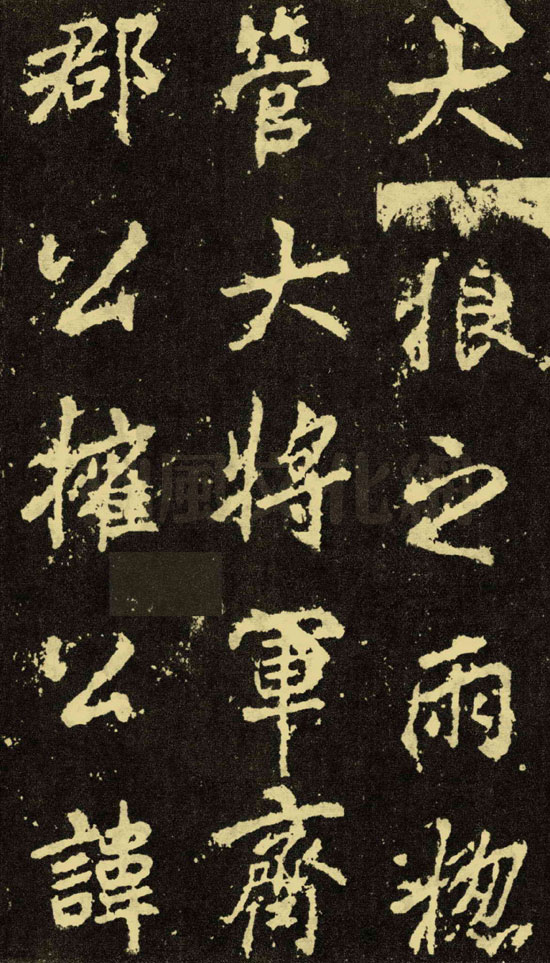 大狼之雨揔
管大將軍齊
郡公搉公諱